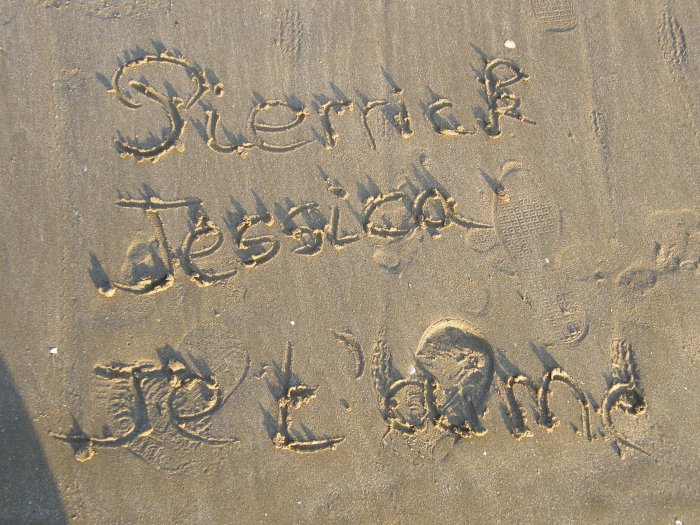 Pierrick
Jessica
Je t'aime